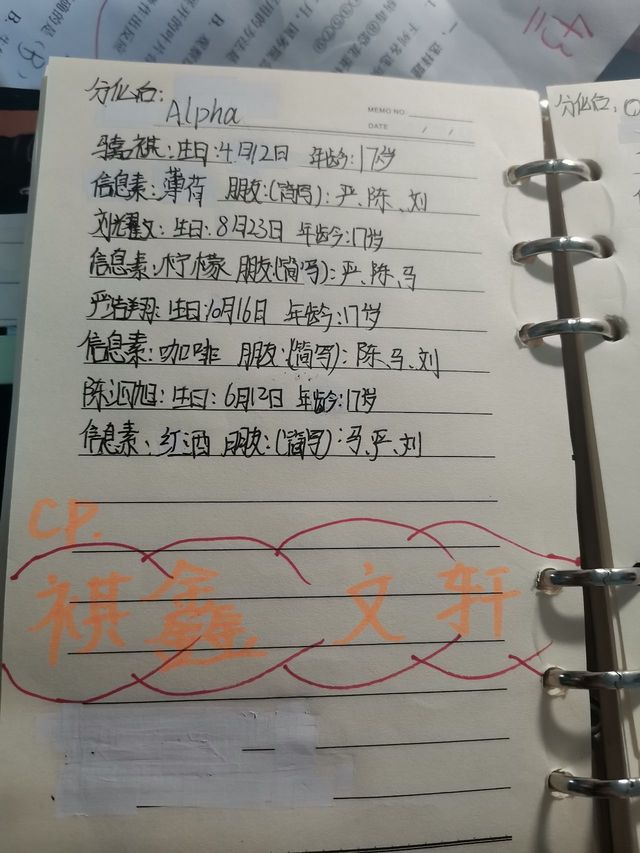 分化后:
Alpha
MEMO NO.
DATE / /
马嘉祺:生日:4月12日 年龄:17岁
信息素:薄荷 朋友:(简写):严、陈、刘
刘耀文:生日:8月23日 年龄:17岁
信息素:柠檬 朋友(简写):严、陈、马
严浩翔:生日:10月16日 年龄:17岁
信息素:咖啡 朋友:(简写):陈、马、刘
陈泗旭:生日:6月12日 年龄:17岁
信息素:红酒 朋友:(简写):马、严、刘
CP.
祺鑫 文轩
分化后: